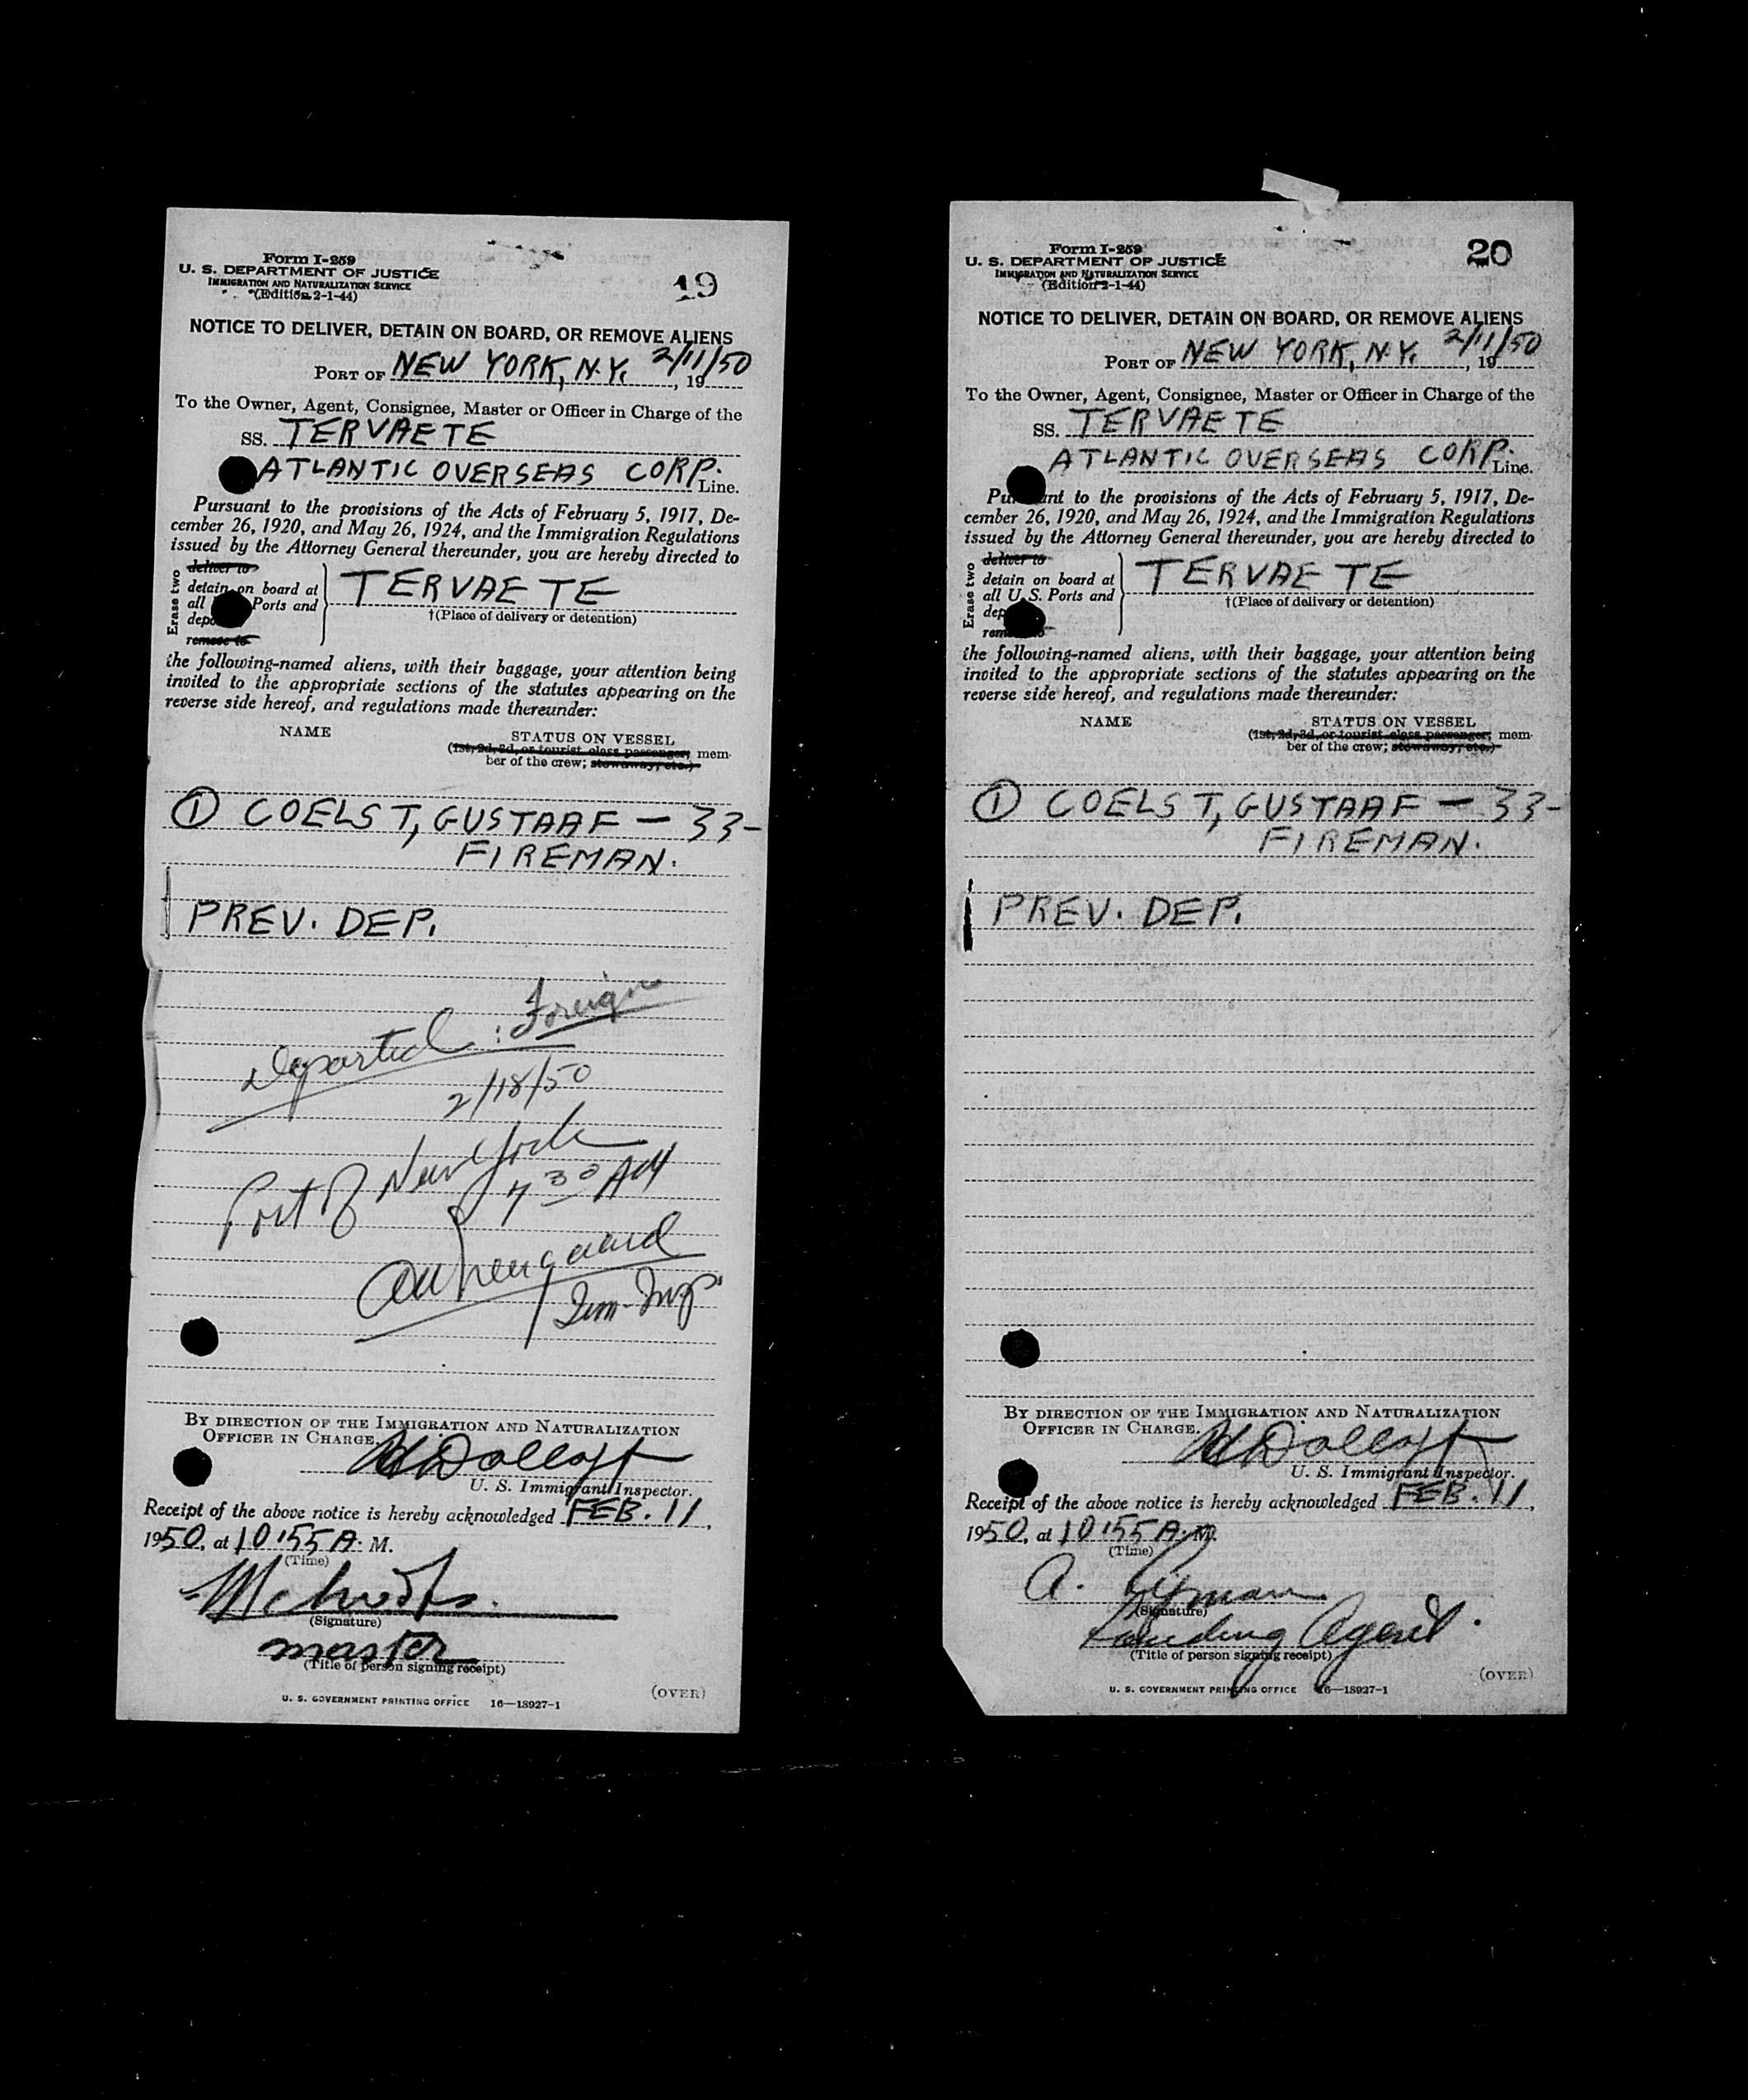 Form I-259
U. S. DEPARTMENT OF JUSTICE
IMMIGRATION AND NATURALIZATION SERVICE
(Edition 2-1-44)
19
NOTICE TO DELIVER, DETAIN ON BOARD, OR REMOVE ALIENS
PORT OF NEW YORK, N.Y. 2/11/50, 19
To the Owner, Agent, Consignee, Master or Officer in Charge of the
SS. TERVAETE
ATLANTIC OVERSEAS CORP. Line.
Pursuant to the provisions of the Acts of February 5, 1917, De-
cember 26, 1920, and May 26, 1924, and the Immigration Regulations
issued by the Attorney General thereunder, you are hereby directed to
Erase two
deliver to
detain on board at
all Ports and
depo
remove to
TERVAETE
†(Place of delivery or detention)
the following-named aliens, with their baggage, your attention being
invited to the appropriate sections of the statutes appearing on the
reverse side hereof, and regulations made thereunder:
NAME STATUS ON VESSEL
(1st, 2d, 3d, or tourist class passenger; mem-
ber of the crew; stowaway, etc.)
① COELST, GUSTAAF — 33-
FIREMAN.
PREV. DEP.
Departed : Foreign
2/18/50
Port of New York
7 30 AM
Imm- Insp
BY DIRECTION OF THE IMMIGRATION AND NATURALIZATION
OFFICER IN CHARGE.
U. S. Immigrant Inspector.
Receipt of the above notice is hereby acknowledged FEB. 11,
1950, at 10:55 A. M.
(Time)
(Signature)
master
(Title of person signing receipt)
U. S. GOVERNMENT PRINTING OFFICE 16—18927-1
(OVER)
Form I-259
U. S. DEPARTMENT OF JUSTICE
IMMIGRATION AND NATURALIZATION SERVICE
(Edition 2-1-44)
20
NOTICE TO DELIVER, DETAIN ON BOARD, OR REMOVE ALIENS
PORT OF NEW YORK, N.Y. 2/11/50, 19
To the Owner, Agent, Consignee, Master or Officer in Charge of the
SS. TERVAETE
ATLANTIC OVERSEAS CORP. Line.
Pu nt to the provisions of the Acts of February 5, 1917, De-
cember 26, 1920, and May 26, 1924, and the Immigration Regulations
issued by the Attorney General thereunder, you are hereby directed to
Erase two
deliver to
detain on board at
all U. S. Ports and
dep
remove to
TERVAETE
†(Place of delivery or detention)
the following-named aliens, with their baggage, your attention being
invited to the appropriate sections of the statutes appearing on the
reverse side hereof, and regulations made thereunder:
NAME STATUS ON VESSEL
(1st, 2d, 3d, or tourist class passenger; mem-
ber of the crew; stowaway, etc.)
① COELST, GUSTAAF — 33-
FIREMAN.
PREV. DEP.
BY DIRECTION OF THE IMMIGRATION AND NATURALIZATION
OFFICER IN CHARGE.
U. S. Immigrant Inspector.
Receipt of the above notice is hereby acknowledged FEB. 11,
1950, at 10:55 A. M.
(Time)
A.
(Signature)
Landing Agent.
(Title of person signing receipt)
U. S. GOVERNMENT PRINTING OFFICE 16—18927-1
(OVER)